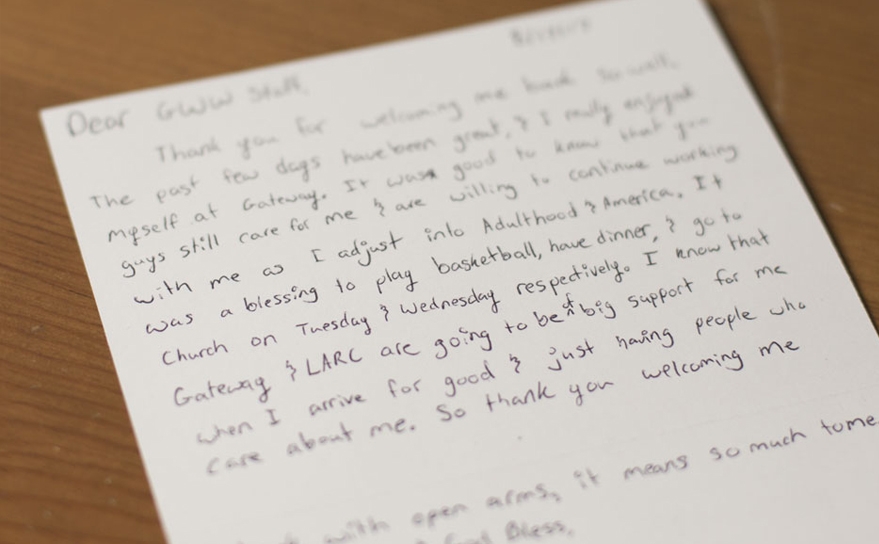 Dear GWW Staff,
Thank you for welcoming me back so well.
The past few days have been great, & I really enjoyed
myself at Gateway. It was good to know that you
guys still care for me & are willing to continue working
with me as I adjust into Adulthood & America. It
was a blessing to play basketball, have dinner, & go to
Church on Tuesday & Wednesday respectively. I know that
Gateway & LARC are going to be a big support for me
when I arrive for good & just having people who
care about me. So thank you welcoming me
with open arms, it means so much to me
God Bless.